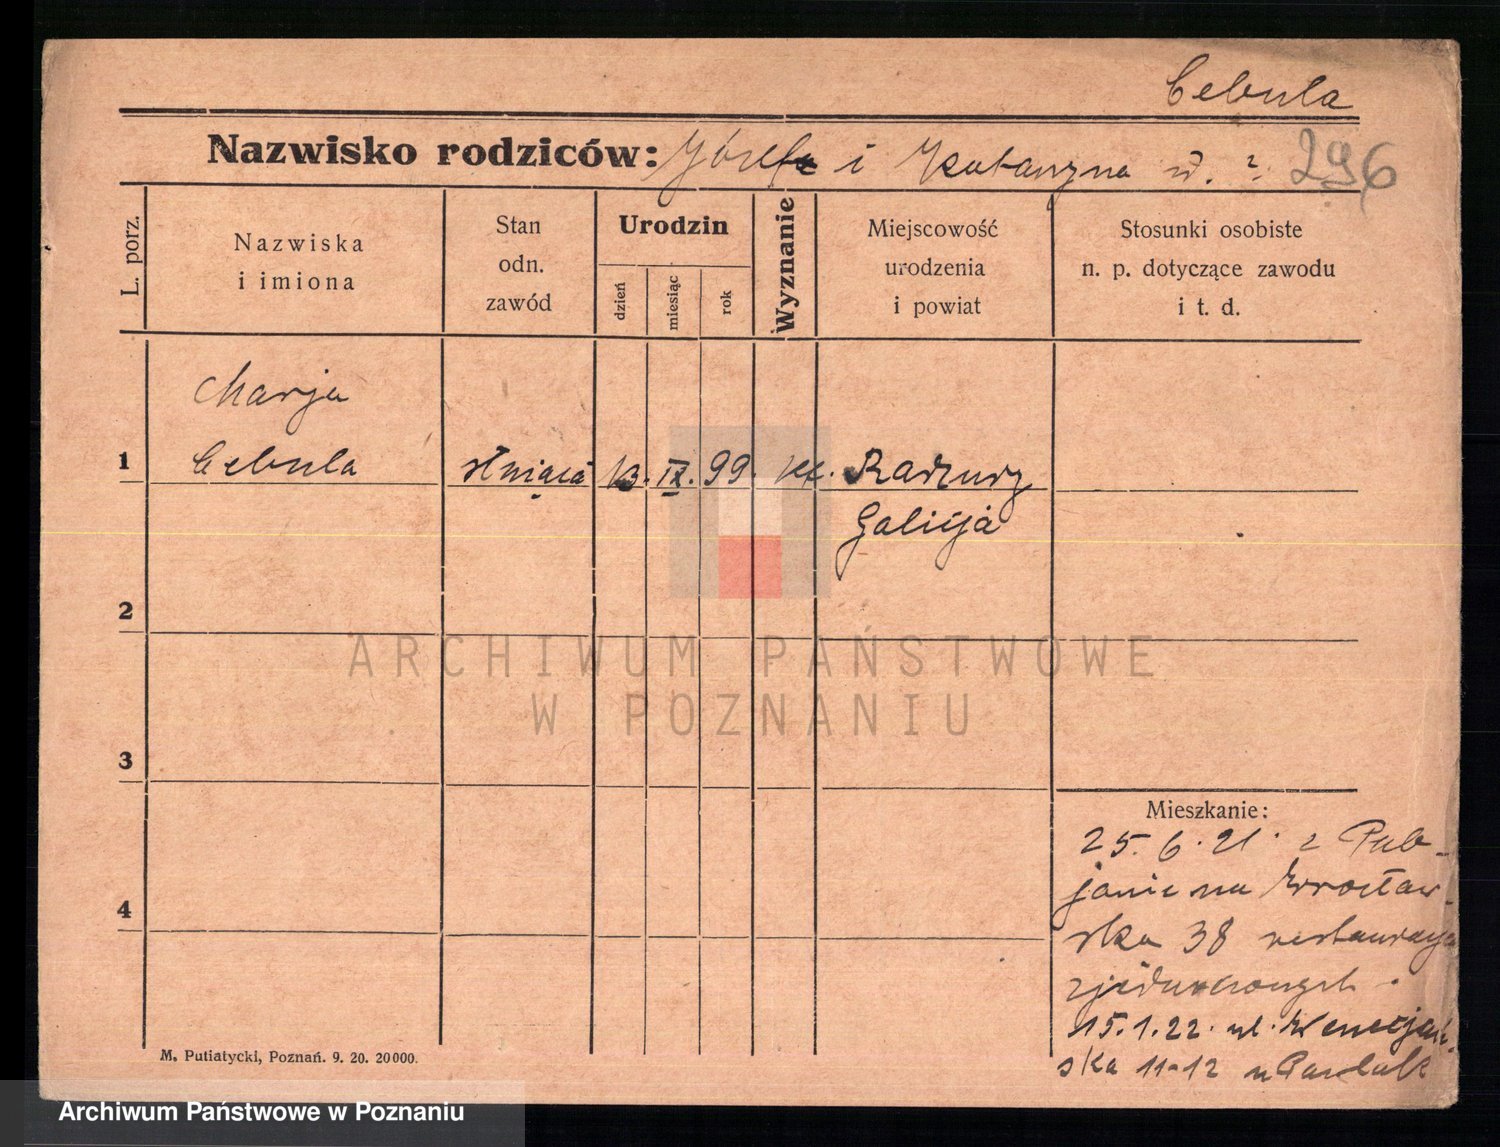 Cebula
Nazwisko rodziców: Józefa i Katarzyna w. ?. 296
L. porz.
Nazwiska
i imiona
Stan
odn.
zawód
Urodzin
dzień
miesiąc
rok
Wyznanie
Miejscowość
urodzenia
i powiat
Stosunki osobiste
n. p. dotyczące zawodu
i t. d.
Marja
1 Cebula służąca 13. IX. 99. kt.
Galicja
2
ARCHIWUM PAŃSTWOWE
W POZNANIU
3
Mieszkanie:
25.6.21. z Pab-
janic na Wrocław-
4
ska 38 restauracja
zjednoczonych.
15.1.22. ul. Wenecjań-
ska 11-12 u
M. Putiatycki, Poznań. 9. 20. 20000.
Archiwum Państwowe w Poznaniu